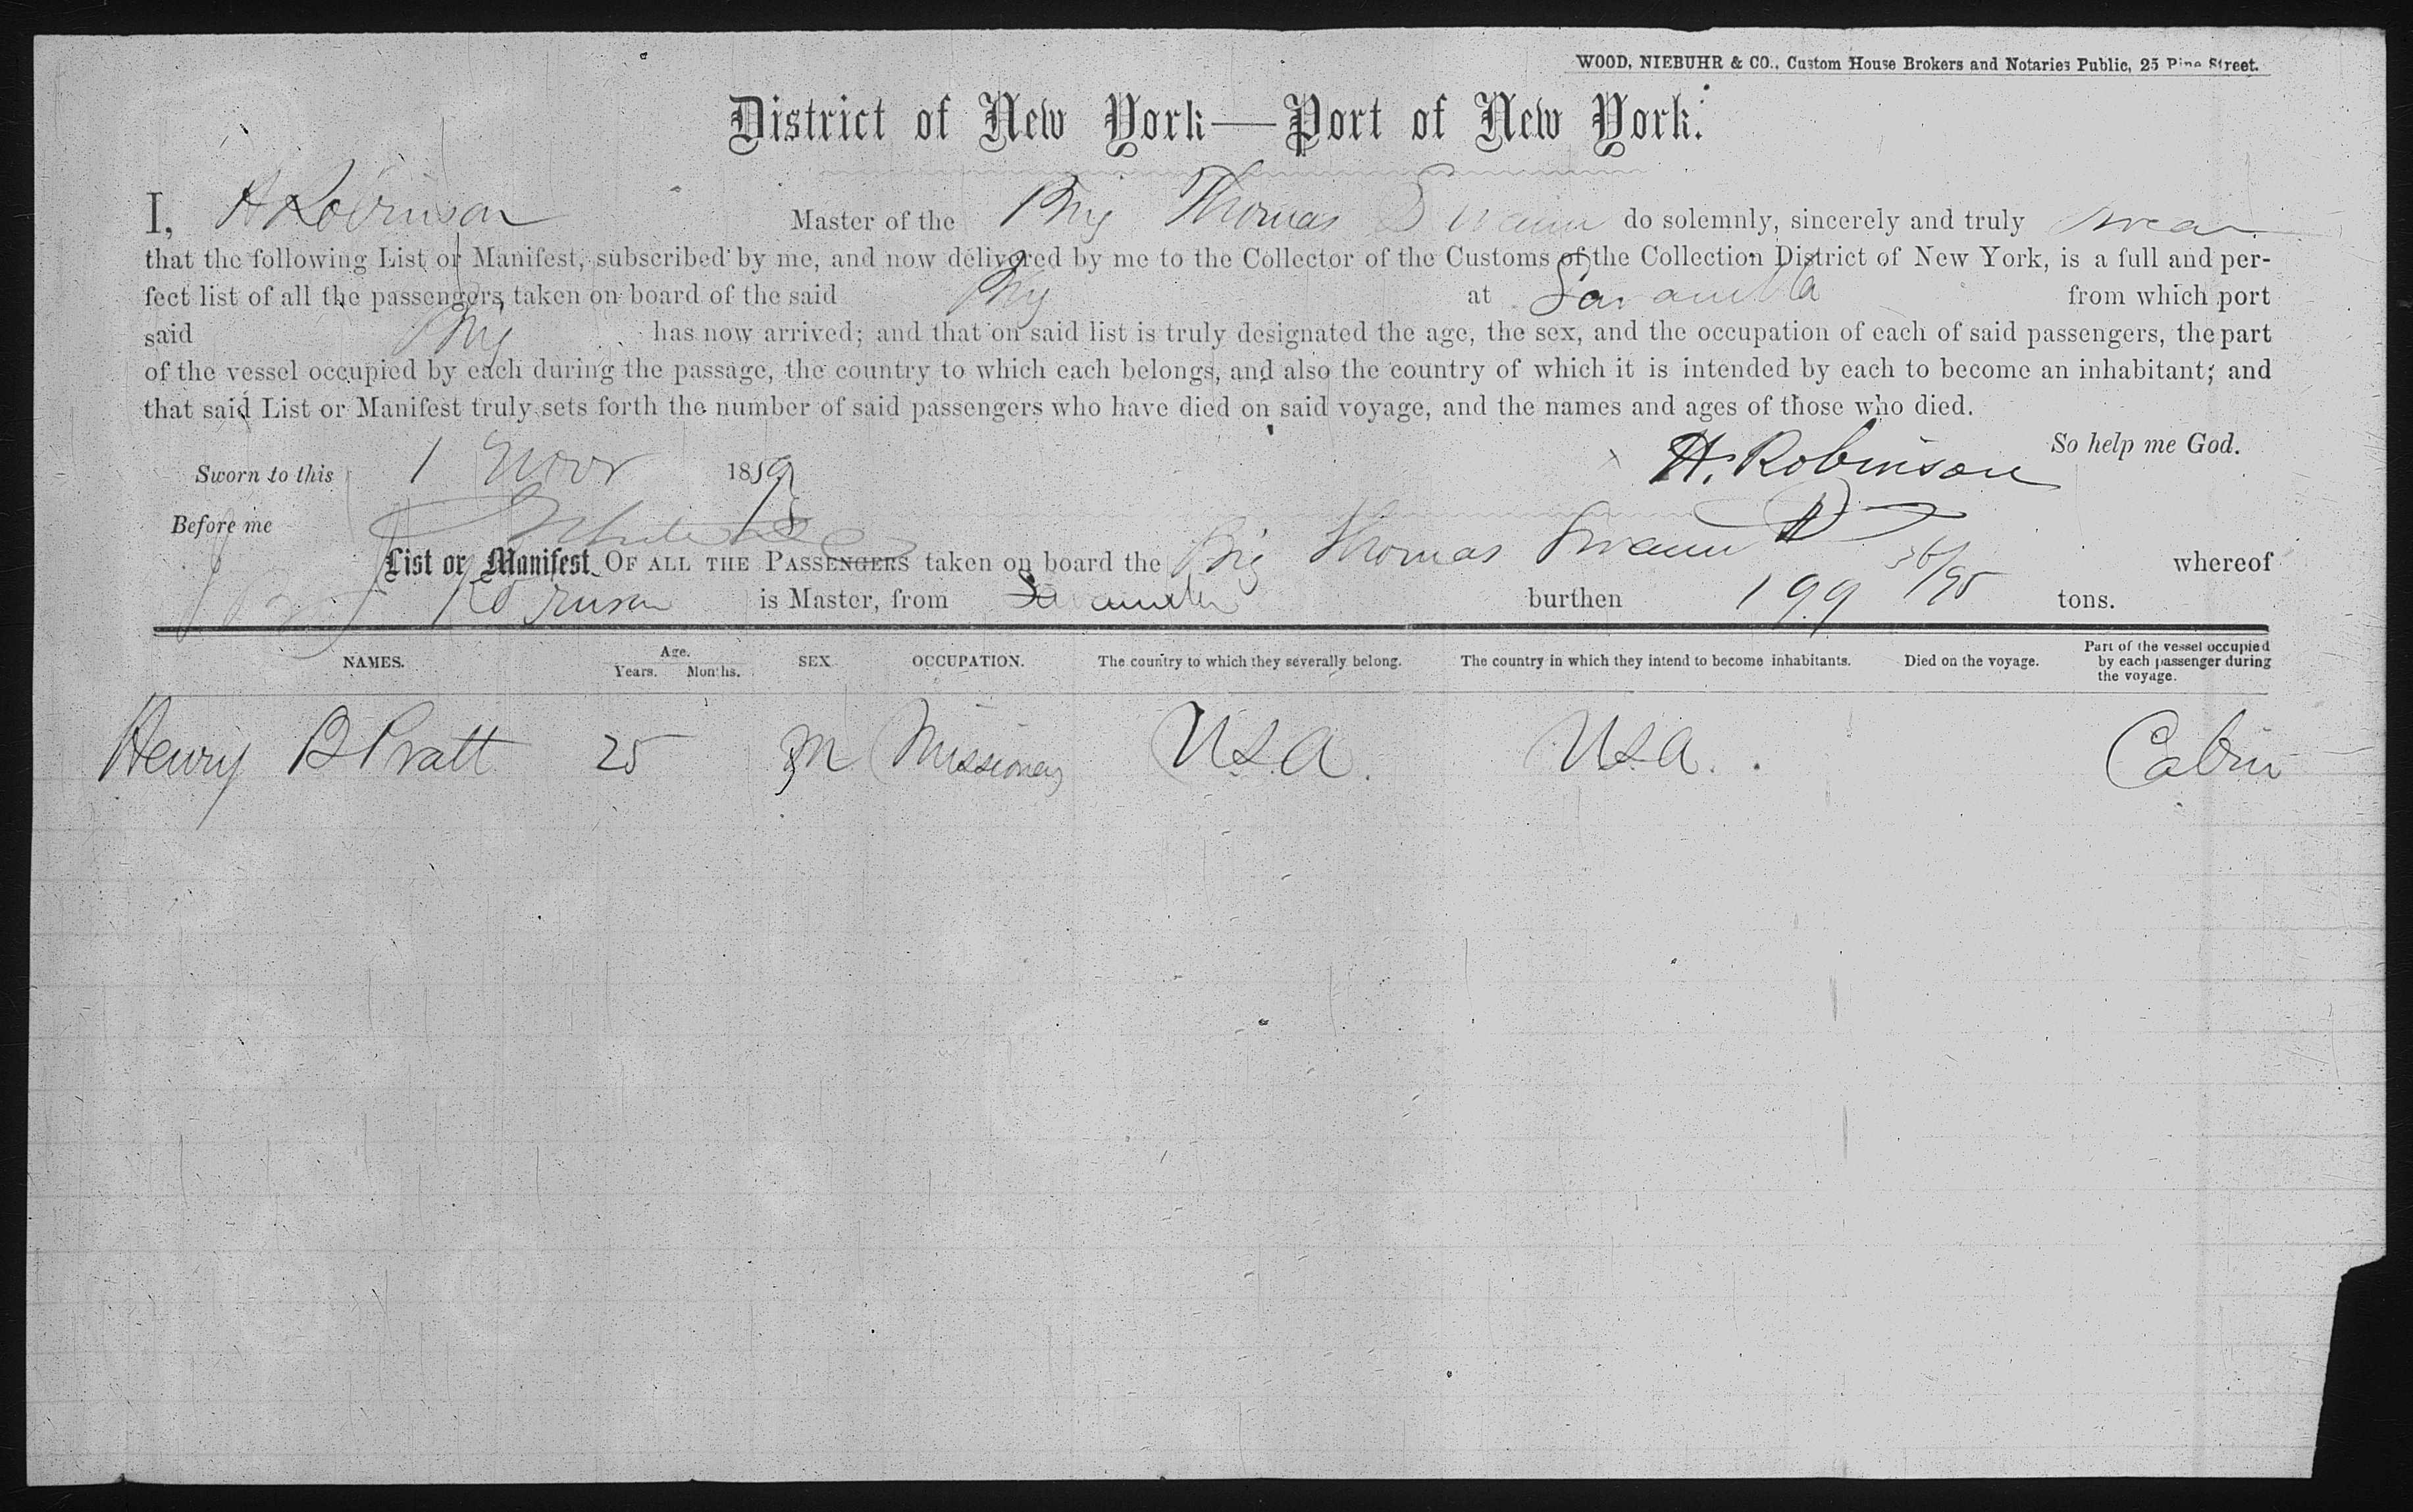 WOOD, NIEBUHR & CO., Custom House Brokers and Notaries Public, 25 Pine Street.
District of New York—Port of New York.
I, H Robinson Master of the Brig Thomas Swann do solemnly, sincerely and truly swear
that the following List or Manifest, subscribed by me, and now delivered by me to the Collector of the Customs of the Collection District of New York, is a full and per-
fect list of all the passengers taken on board of the said Brig at Savanilla from which port
said Brig has now arrived; and that on said list is truly designated the age, the sex, and the occupation of each of said passengers, the part
of the vessel occupied by each during the passage, the country to which each belongs, and also the country of which it is intended by each to become an inhabitant; and
that said List or Manifest truly sets forth the number of said passengers who have died on said voyage, and the names and ages of those who died.
So help me God.
Sworn to this 1 Novr 1859 H. Robinson
Before me
List or Manifest OF ALL THE PASSENGERS taken on board the Brig Thomas Swann whereof
Robinson is Master, from Savanilla burthen 199 36/95 tons.
NAMES. Age. Years. Months. SEX OCCUPATION. The country to which they severally belong. The country in which they intend to become inhabitants. Died on the voyage. Part of the vessel occupied by each passenger during the voyage.
Henry B Pratt 25 M Missionary U.S.A. U.S.A. Cabin